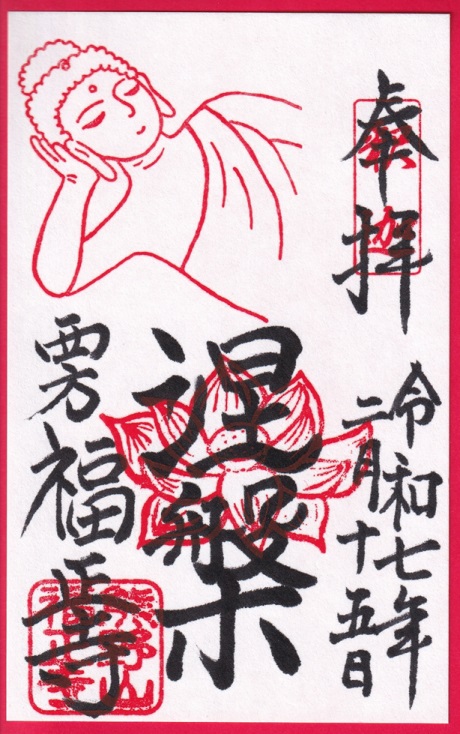 奉拝
令和七年
二月十五日
涅槃
西方
福正寺